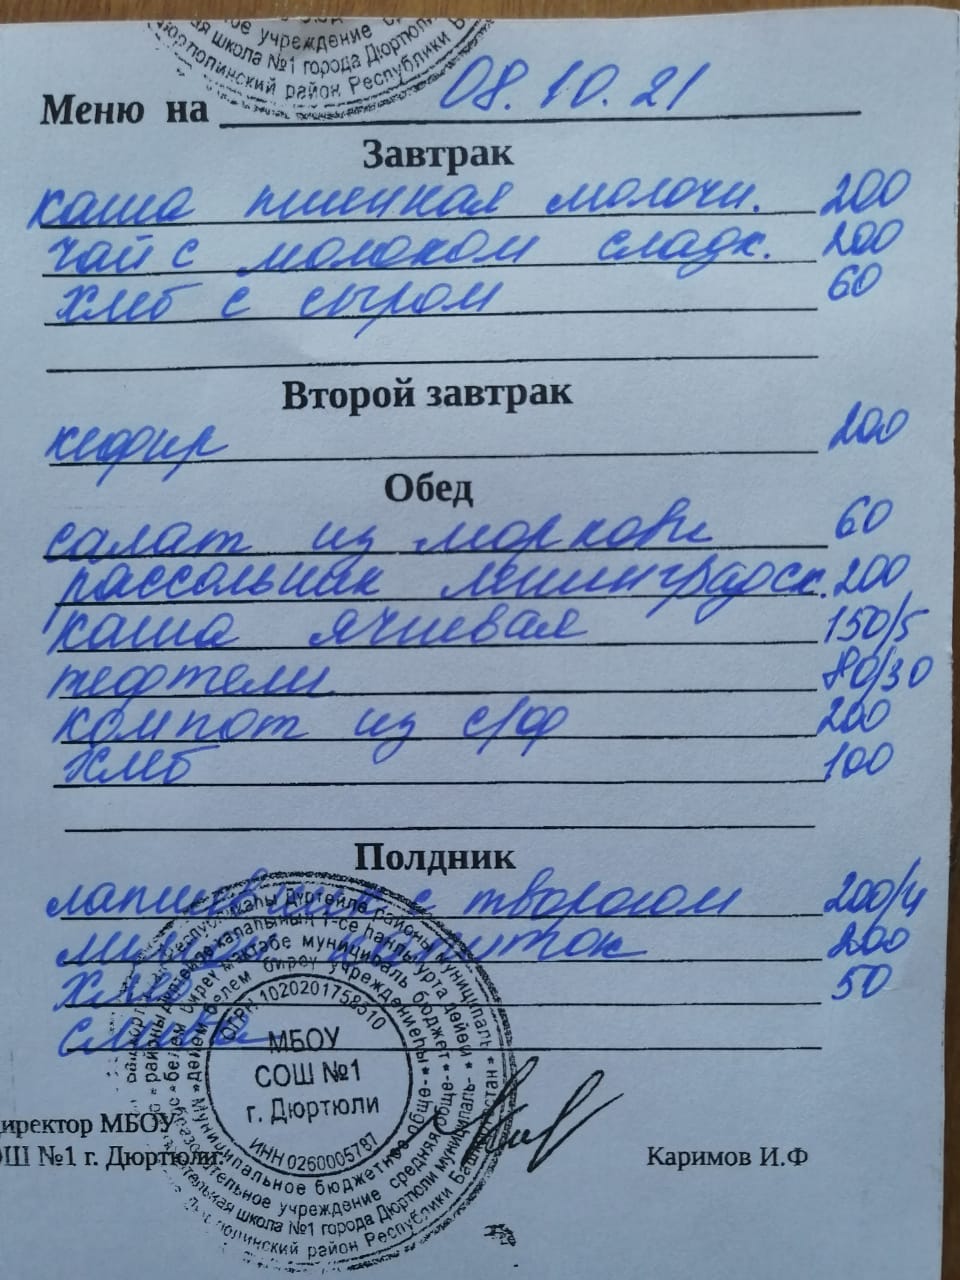 ое учреждение
ая школа №1 города Дюртюли
Дюртюлинский район Республики Б
Меню на 08.10.21
Завтрак
каша пшенная молочн. 200
чай с молоком сладк. 200
хлеб с сыром 60
Второй завтрак
кефир 200
Обед
салат из моркови 60
рассольник ленинградск. 200
каша ячневая 150/5
тефтели 80/30
компот из с/ф 200
хлеб 100
Полдник
лапшевник с творогом 200/4
напиток 200
хлеб 50
слива
ОГРН 1020201758510
МБОУ
СОШ №1
г. Дюртюли
ИНН 0260005787
Муниципальное бюджетное обще-
образовательное учреждение средняя обще-
образовательная школа №1 города Дюртюли муниципаль-
Дюртюлинский район Республики Башкортостан
иректор МБОУ
ОШ №1 г. Дюртюли:
Каримов И.Ф